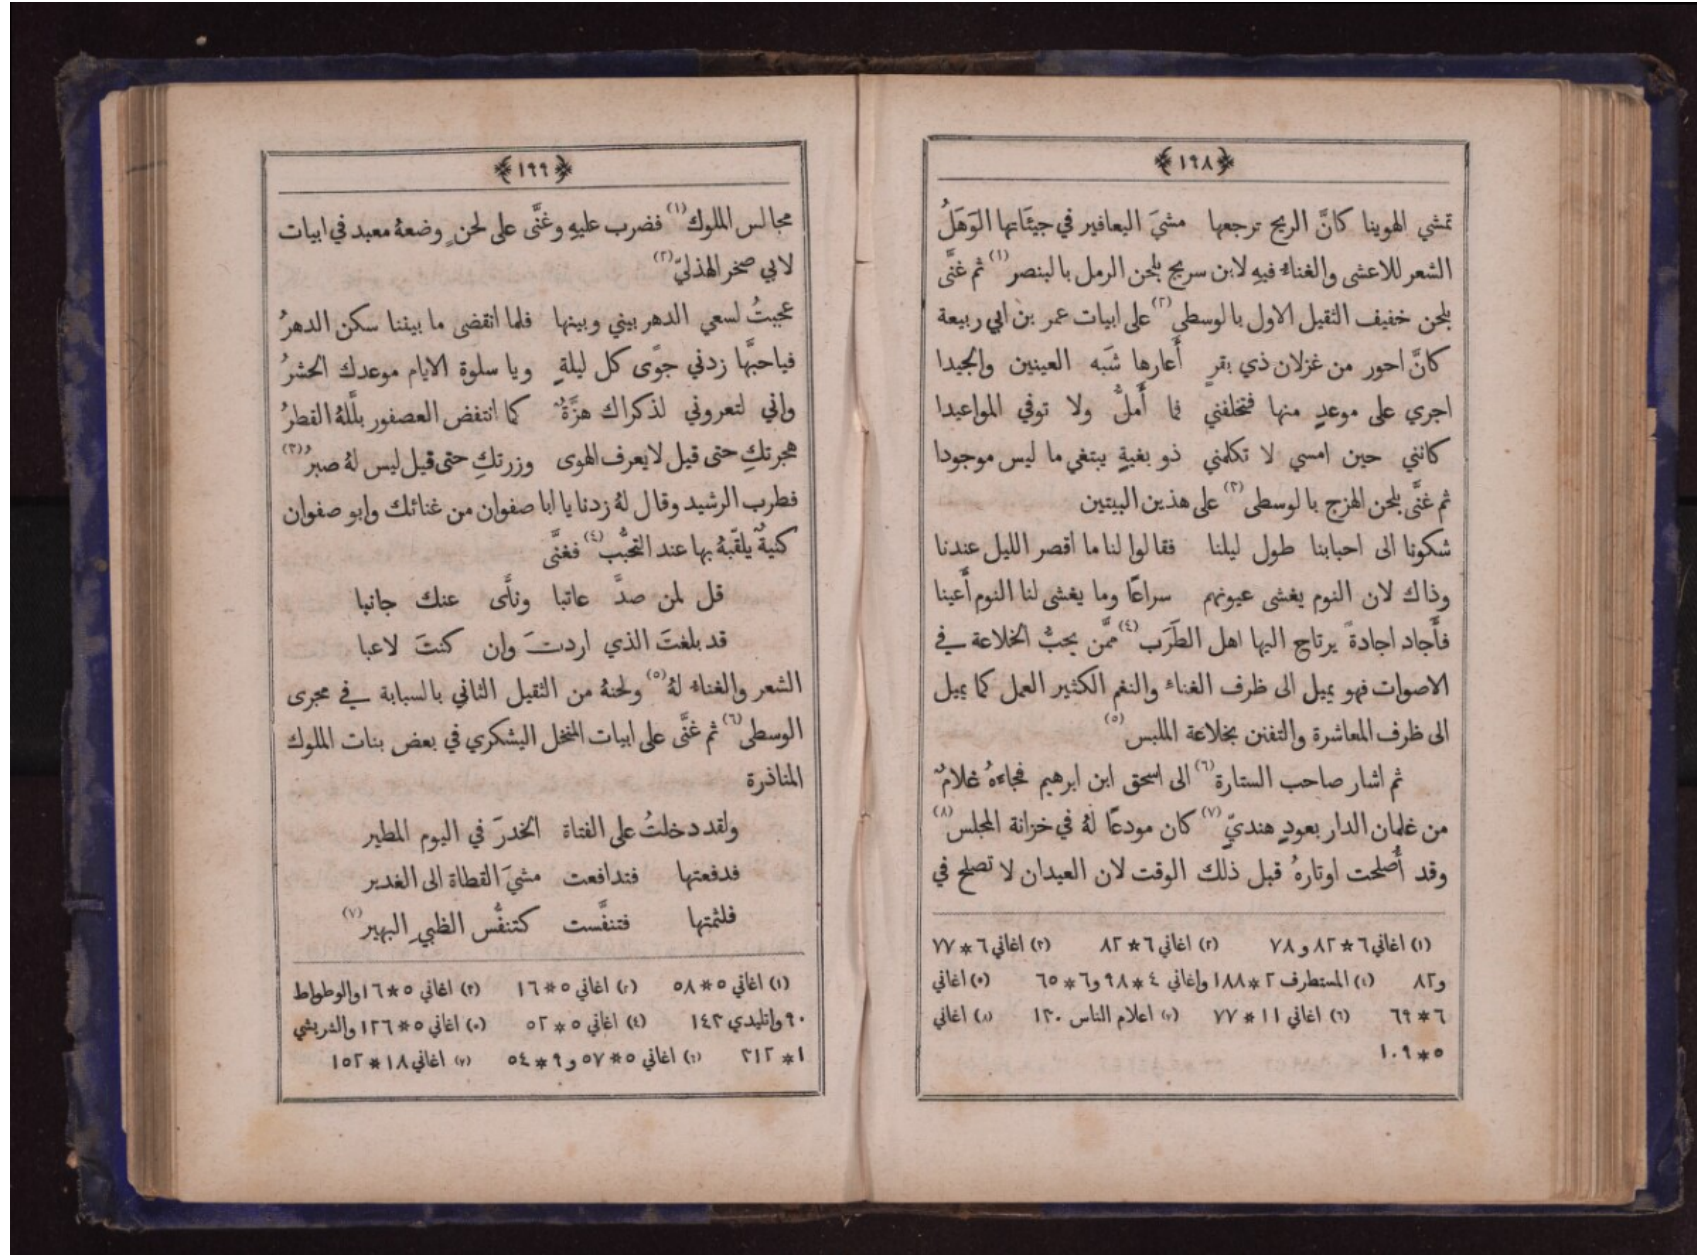 ﴿١٩٨﴾
تمشي الهوينا كانَّ الريح ترجعها مشيَ اليعافير في جيئَاتها الوَهَلُ
الشعر للاعشى والغناءُ فيهِ لابن سريج بلحن الرمل بالبنصر (١) ثم غنَّى
بلحن خفيف الثقيل الاول بالوسطى (٢) على ابيات عمر بن ابي ربيعة
كانَّ احور من غزلان ذي بقرٍ أَعارها شَبَه العينين والجيدا
اجري على موعدٍ منها فتخلفني فما أَملُّ ولا توفي المواعيدا
كانني حين امسي لا تكلمني ذو بغيةٍ يبتغي ما ليس موجودا
ثم غنَّى بلحن الهزج بالوسطى (٣) على هذين البيتين
شكونا الى احبابنا طول ليلنا فقالوا لنا ما اقصر الليل عندنا
وذاك لان النوم يغشى عيونهم سراعًا وما يغشى لنا النوم أَعينا
فأَجاد اجادةً يرتاح اليها اهل الطَرَب (٤) ممَّن يحبُّ الخلاعة في
الاصوات فهو يميل الى ظرف الغناء والنغم الكثير العمل كما يميل
الى ظرف المعاشرة والتفنن بخلاعة الملبس (٥)
ثم اشار صاحب الستارة (٦) الى اسحق ابن ابرهيم فجاءَهُ غلامٌ
من غلمان الدار بعودٍ هنديّ (٧) كان مودعًا لهُ في خزانة المجلس (٨)
وقد أُصلحت اوتارهُ قبل ذلك الوقت لان العيدان لا تصلح في
(١) اغاني ٦*٨٢ و ٧٨ (٢) اغاني ٦*٨٢ (٣) اغاني ٦*٧٧
و٨٢ (٤) المستطرف ٢*١٨٨ واغاني ٤*٩٨ و٦*٦٥ (٥) اغاني
٦*٦٩ (٦) اغاني ١١*٧٧ (٧) اعلام الناس ١٣٠ (٨) اغاني
٥*١٠٩
﴿١٩٩﴾
مجالس الملوك (١) فضرب عليهِ وغنَّى على لحنٍ وضعهُ معبد في ابيات
لابي صخر الهذليّ (٢)
عجبتُ لسعي الدهر بيني وبينها فلما انقضى ما بيننا سكن الدهرُ
فياحبَّها زدني جوًى كل ليلةٍ ويا سلوة الايام موعدك الحشرُ
واني لتعروني لذكراك هزَّةٌ كما انتفض العصفور بلَّلهُ القطرُ
هجرتكِ حتى قيل لايعرف الهوى وزرتكِ حتى قيل ليس لهُ صبرُ (٣)
فطرب الرشيد وقال لهُ زدنا يا ابا صفوان من غنائك وابو صفوان
كنيةٌ يلقّبهُ بها عند التحبُّب (٤) فغنَّى
قل لمن صدَّ عاتبا ونأَى عنك جانبا
قد بلغتَ الذي اردتَ وان كنتَ لاعبا
الشعر والغناء لهُ (٥) ولحنهُ من الثقيل الثاني بالسبابة في مجرى
الوسطى (٦) ثم غنَّى على ابيات المنخل اليشكري في بعض بنات الملوك
المناذرة
ولقد دخلتُ على الفتاة الخدرَ في اليوم المطير
فدفعتها فتدافعت مشيَ القطاة الى الغدير
فلثمتها فتنفَّست كتنفُّس الظبيِ البهير (٧)
(١) اغاني ٥*٥٨ (٢) اغاني ٥*١٦ (٣) اغاني ٥*١٦ والوطواط
٩٠ واتليدي ١٤٣ (٤) اغاني ٥*٥٢ (٥) اغاني ٥*١٢٦ والشريشي
١*٣١٢ (٦) اغاني ٥*٥٧ و ٩*٥٤ (٧) اغاني ١٨*١٥٢